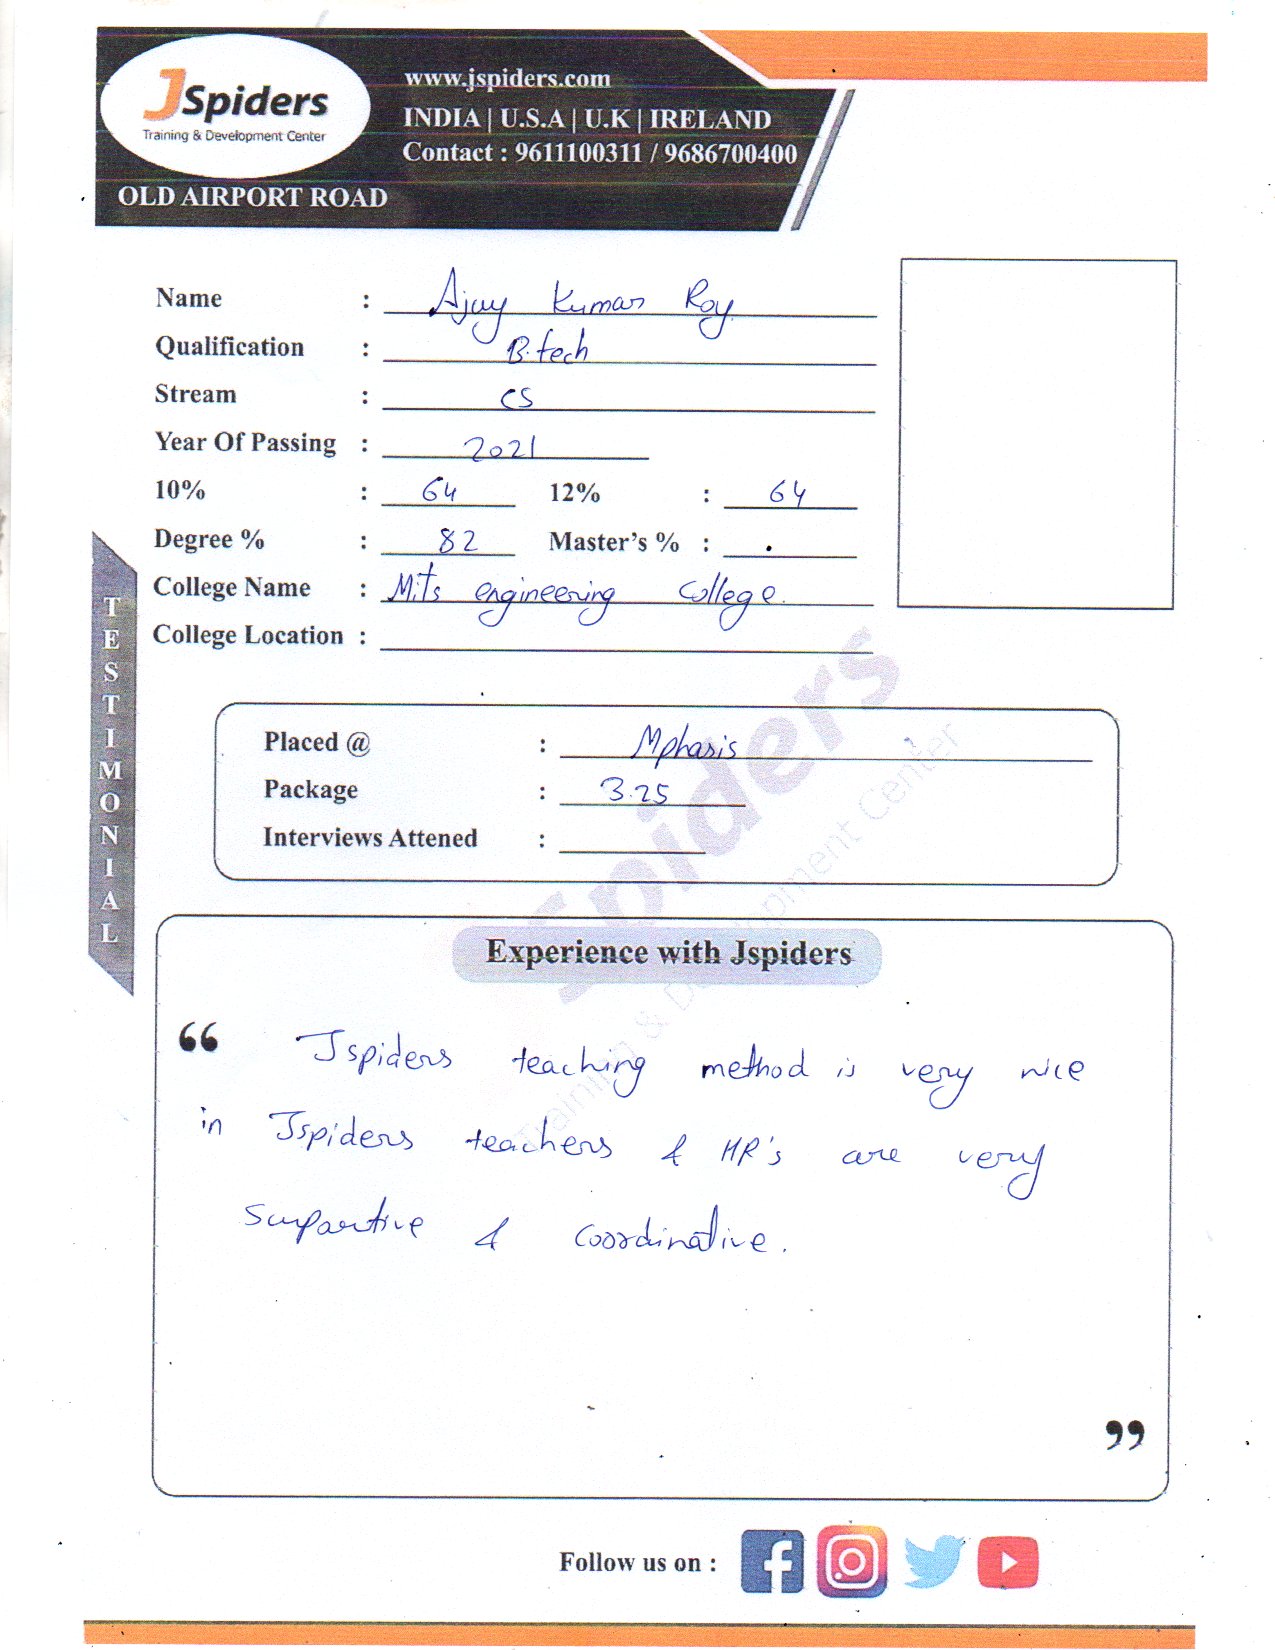 JSpiders
Training & Development Center
OLD AIRPORT ROAD
www.jspiders.com
INDIA | U.S.A | U.K | IRELAND
Contact : 9611100311 / 9686700400
Name : Ajay Kumar Roy.
Qualification : B.tech
Stream : CS
Year Of Passing : 2021
10% : 64 12% : 64
Degree % : 82 Master's % : .
College Name : Mits engineering college.
College Location :
TESTIMONIAL
Placed @ : Mphasis
Package : 3.25
Interviews Attened :
Spiders
Training & Development Center
Experience with Jspiders
“ Jspiders teaching method is very nice
in Jspiders teachers & HR's are very
supportive & coordinative.
”
Follow us on :